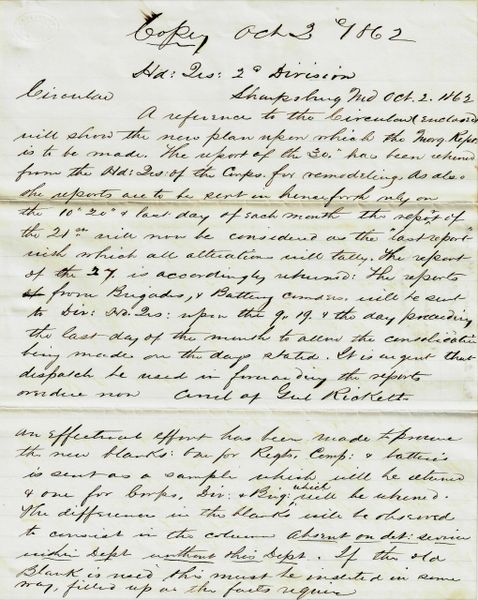 Copy Oct 3d 1862
Hd: Qrs: 2d Division
Circular Sharpsburg Md Oct. 2. 1862
A reference to the Circular (enclosed
will show the new plan upon which the Morg Repts
is to be made. The report of the 30. has been returned
from the Hd: Qrs: of the Corps. for remodeling. As also
the reports are to be sent in henceforth only on
the 10" 20" & last day of each month the report of
the will now be considered as the "last report"
with which all alterations will tally. The report
of the 27. is accordingly returned: The reports
from Brigades, & Battery comdrs. will be sent
to Div: Hd. Qrs: upon the 9. 19. & the day preceeding
the last day of the month to allow the consolidation
being made on the days stated. It is urgent that
dispatch be used in forwarding the reports
overdue now of Genl Ricketts
An effectual effort has been made to procure
the new blanks: One for Regts, Comp: & batteries
is sent as a sample which will be returned
& one for Corps, Div: & Brig: which will be returned.
The difference in the blanks will be observed
to consist in the column Absent on det: service
within Dept without this Dept. If the old
Blank is used this must be inserted in some
way, filled up as the facts require